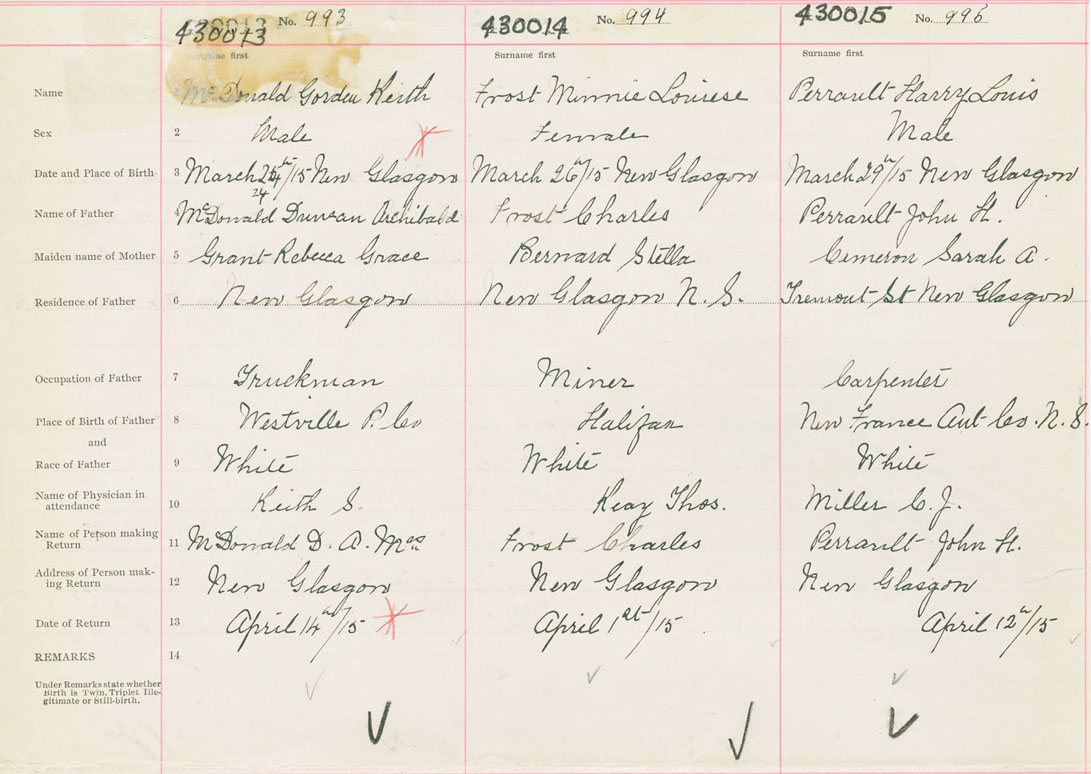 430013 No. 993 430014 No. 994 430015 No. 995
Surname first Surname first Surname first
Name McDonald Gordon Keith Frost Minnie Louise Perrault Harry Louis
Sex 2 Male Female Male
Date and Place of Birth 3 March 24th/15 New Glasgow March 26th/15 New Glasgow March 29th/15 New Glasgow
24
Name of Father 4 McDonald Duncan Archibald Frost Charles Perrault John H.
Maiden name of Mother 5 Grant Rebecca Grace Bernard Stella Cemeron Sarah A.
Residence of Father 6 New Glasgow New Glasgow N. S. Tremont St New Glasgow
Occupation of Father 7 Truckman Miner Carpenter
Place of Birth of Father 8 Westville P. Co Halifax New France Ant Co. N. S.
and
Race of Father 9 White White White
Name of Physician in
attendance 10 Keith S. Keay Thos. Miller C. J.
Name of Person making
Return 11 McDonald D. A. Mrs Frost Charles Perrault John H.
Address of Person mak-
ing Return 12 New Glasgow New Glasgow New Glasgow
Date of Return 13 April 14th/15 April 1st/15 April 12th/15
REMARKS 14
Under Remarks state whether
Birth is Twin, Triplet, Ille-
gitimate or Still-birth.